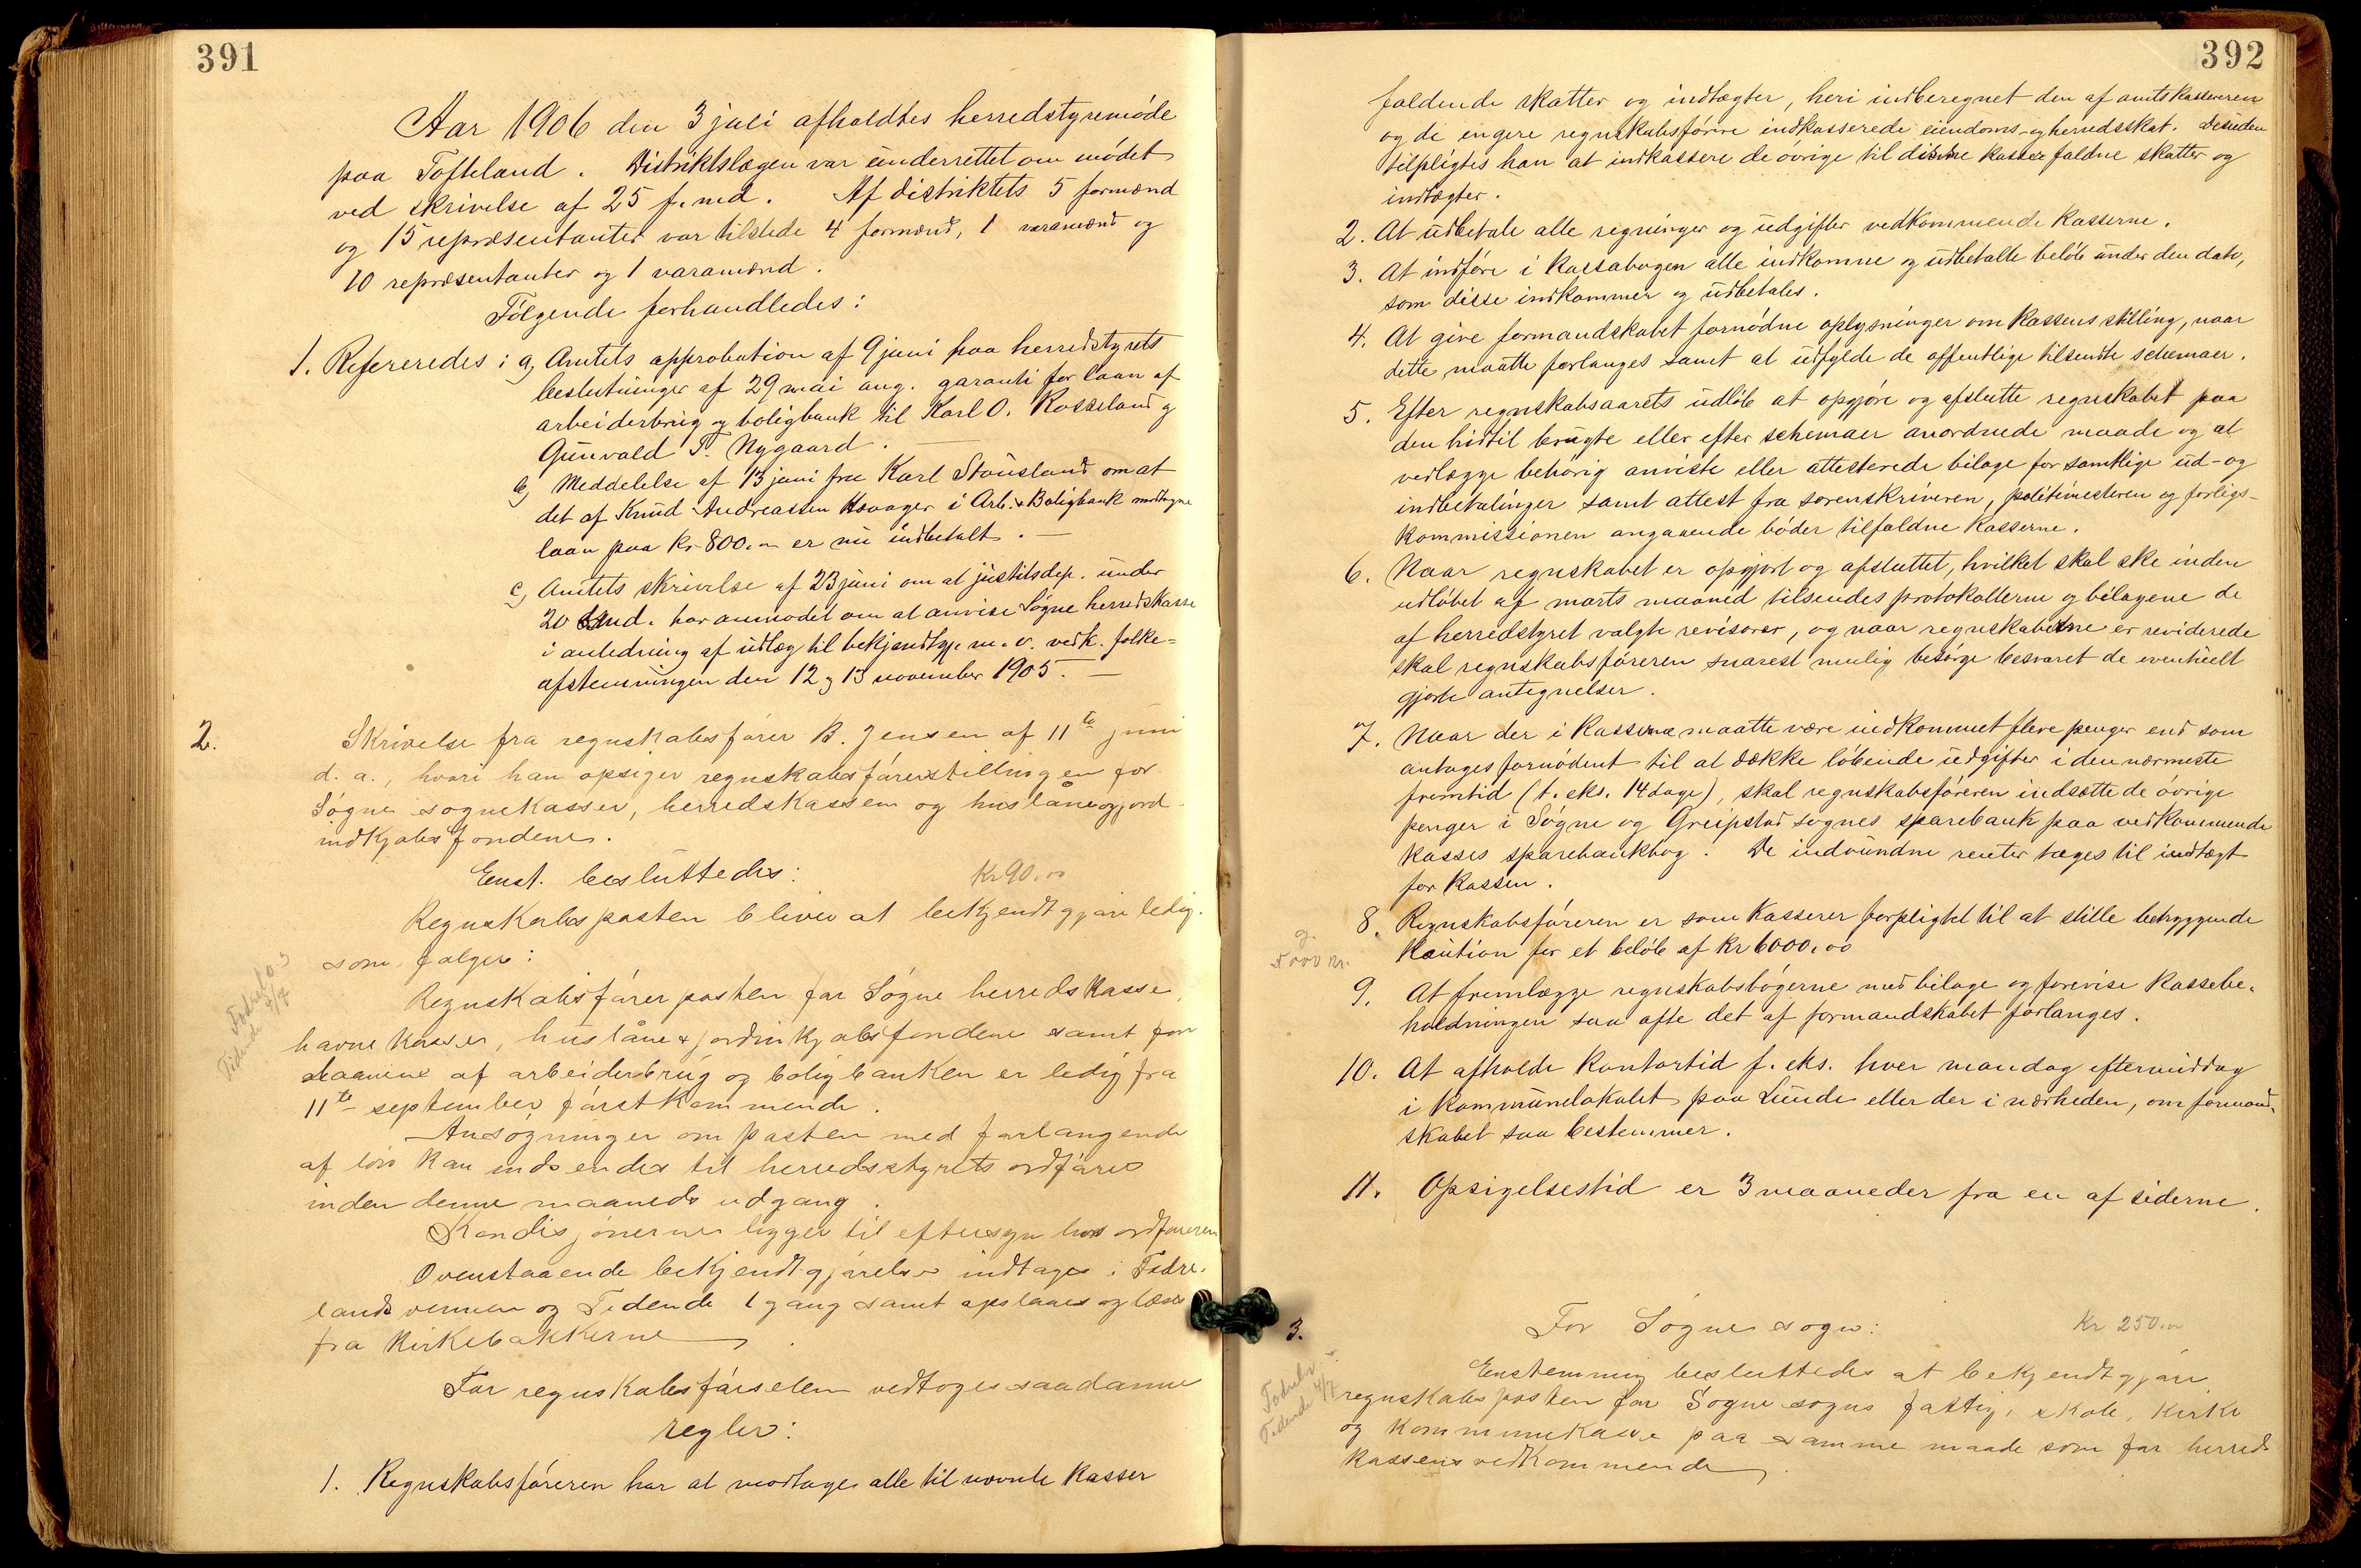 391
Aar 1906 den 3 juli afholdtes herredstyremöde
paa Tofteland. Distriktslægen var underrettet om mödet
ved skrivelse af 25 f. md. Af distriktets 5 formænd
og 15 repræsentanter var tilstede 4 formænd, 1 varamænd og
10 repræsentanter og 1 varamænd.
Fölgende forhandledes:
1. Refereredes: a, Amtets approbation af 9 juni paa herredstyrets
beslutninger af 29 mai ang. garanti for laan af
arbeiderbrug og boligbank til Karl O. Rosseland og
Gunvald T. Nygaard. —
b, Meddelelse af 13 juni fra Karl Stausland om at
det af Knud Andreassen Havager i Arb. & Boligbank modtagne
laan paa kr 800.00 er nu indbetalt. —
c, Amtets skrivelse af 23 juni om at justitsdep. under
20 s. md. har anmodet om at anvise Søgne herredskasse
i anledning af udlæg til bekjendtg. m. v. vedk. folke=
afstemningen den 12 og 13 november 1905. —
2. Skrivelse fra regnskabsförer B. Jensen af 11te juni
d. a., hvori han opsiger regnskabsförerstillingen for
Søgne sognekasser, herredskassen og huslåne og jord
indkjøbsfondene.
Enst. besluttedes: Kr 90.00
Regnskabsposten bliver at bekjendtgjøre ledig.
som følger:
Fædrel. o. s
Tidende 4/7
Regnskabsförer posten for Søgne herredskasse,
havnekasser, huslåne & jordinkjøbsfondene samt for
laanene af arbeiderbrug og boligbanken er ledig fra
11te september førstkommende.
Ansøgninger om posten med forlangende
af løn kan indsendes til herredsstyrets ordfører
inden denne maaneds udgang.
Kondisjonerne ligger til eftersyn hos ordføreren
Ovenstaaende bekjendtgjørelse indtages i Fædre-
landsvennen og Tidende 1 gang samt opslaaes og læses
fra Kirkebakkerne.
For regnskabsførselen vedtoges saadanne
regler:
1. Regnskabsföreren har at modtage alle til nævnte kasser
392
faldende skatter og indtægter, heri indberegnet den af amtskassereren
og de engere regnskabsförere indkasserede eiendoms- og herredsskat. Desuden
tilpligtes han at indkassere de övrige til disse kasser faldne skatter og
indtægter.
2. At udbetale alle regninger og udgifter vedkommende kasserne.
3. At indföre i kassabogen alle indkomne og udbetalte belöb under den dato,
som disse indkommer og udbetales.
4. At give formandskabet fornødne oplysninger om kassens stilling, naar
dette maatte forlanges samt at udfylde de offentlige tilsendte schemaer.
5. Efter regnskabsaarets udlöb at opgjøre og afslutte regnskabet paa
den hidtil brugte eller efter schemaer anordnede maade og at
vedlægge behörig anviste eller attesterede bilage for samtlige ud- og
indbetalinger samt attest fra sorenskriveren, politimesteren og forligs-
kommissionen angaaende böder tilfaldne kasserne.
6. Naar regnskabet er opgjort og afsluttet, hvilket skal ske inden
udløbet af marts maaned tilsendes protokollerne og bilagene de
af herredstyret valgte revisorer, og naar regnskaberne er reviderede
skal regnskabsföreren snarest mulig besörge besvaret de eventuelt
gjorte antegnelser.
7. Naar der i kasserne maatte være indkommet flere penger end som
antages fornödent til at dække löbende udgifter i den nærmeste
fremtid (t. eks. 14 dage), skal regnskabsföreren indsætte de övrige
penger i Søgne og Greipstad sognes sparebank paa vedkommende
kasses sparebankbog. De indvundne renter tages til indtægt
for kassen.
8. Regnskabsföreren er som kasserer forpligtet til at stille betryggende
kaution for et belöb af kr 6000.00
5000 kr.
9. At fremlægge regnskabsbögerne med bilage og forevise kassebe-
holdningen saa ofte det af formandskabet forlanges.
10. At afholde kontortid f. eks. hver mandag eftermiddag
i kommunelokalet paa Lunde eller der i nærheden, om formand-
skabet saa bestemmer.
11. Opsigelsestid er 3 maaneder fra en af siderne.
3. For Søgne sogn: Kr 250.00
Fædrel. o.
Tidende 4/7
Enstemmig besluttedes at bekjendtgjøre
regnskabsposten for Søgne sogns fattig, skole, kirke
og kommunekasse paa samme maade som for herreds
kassens vedkommende.